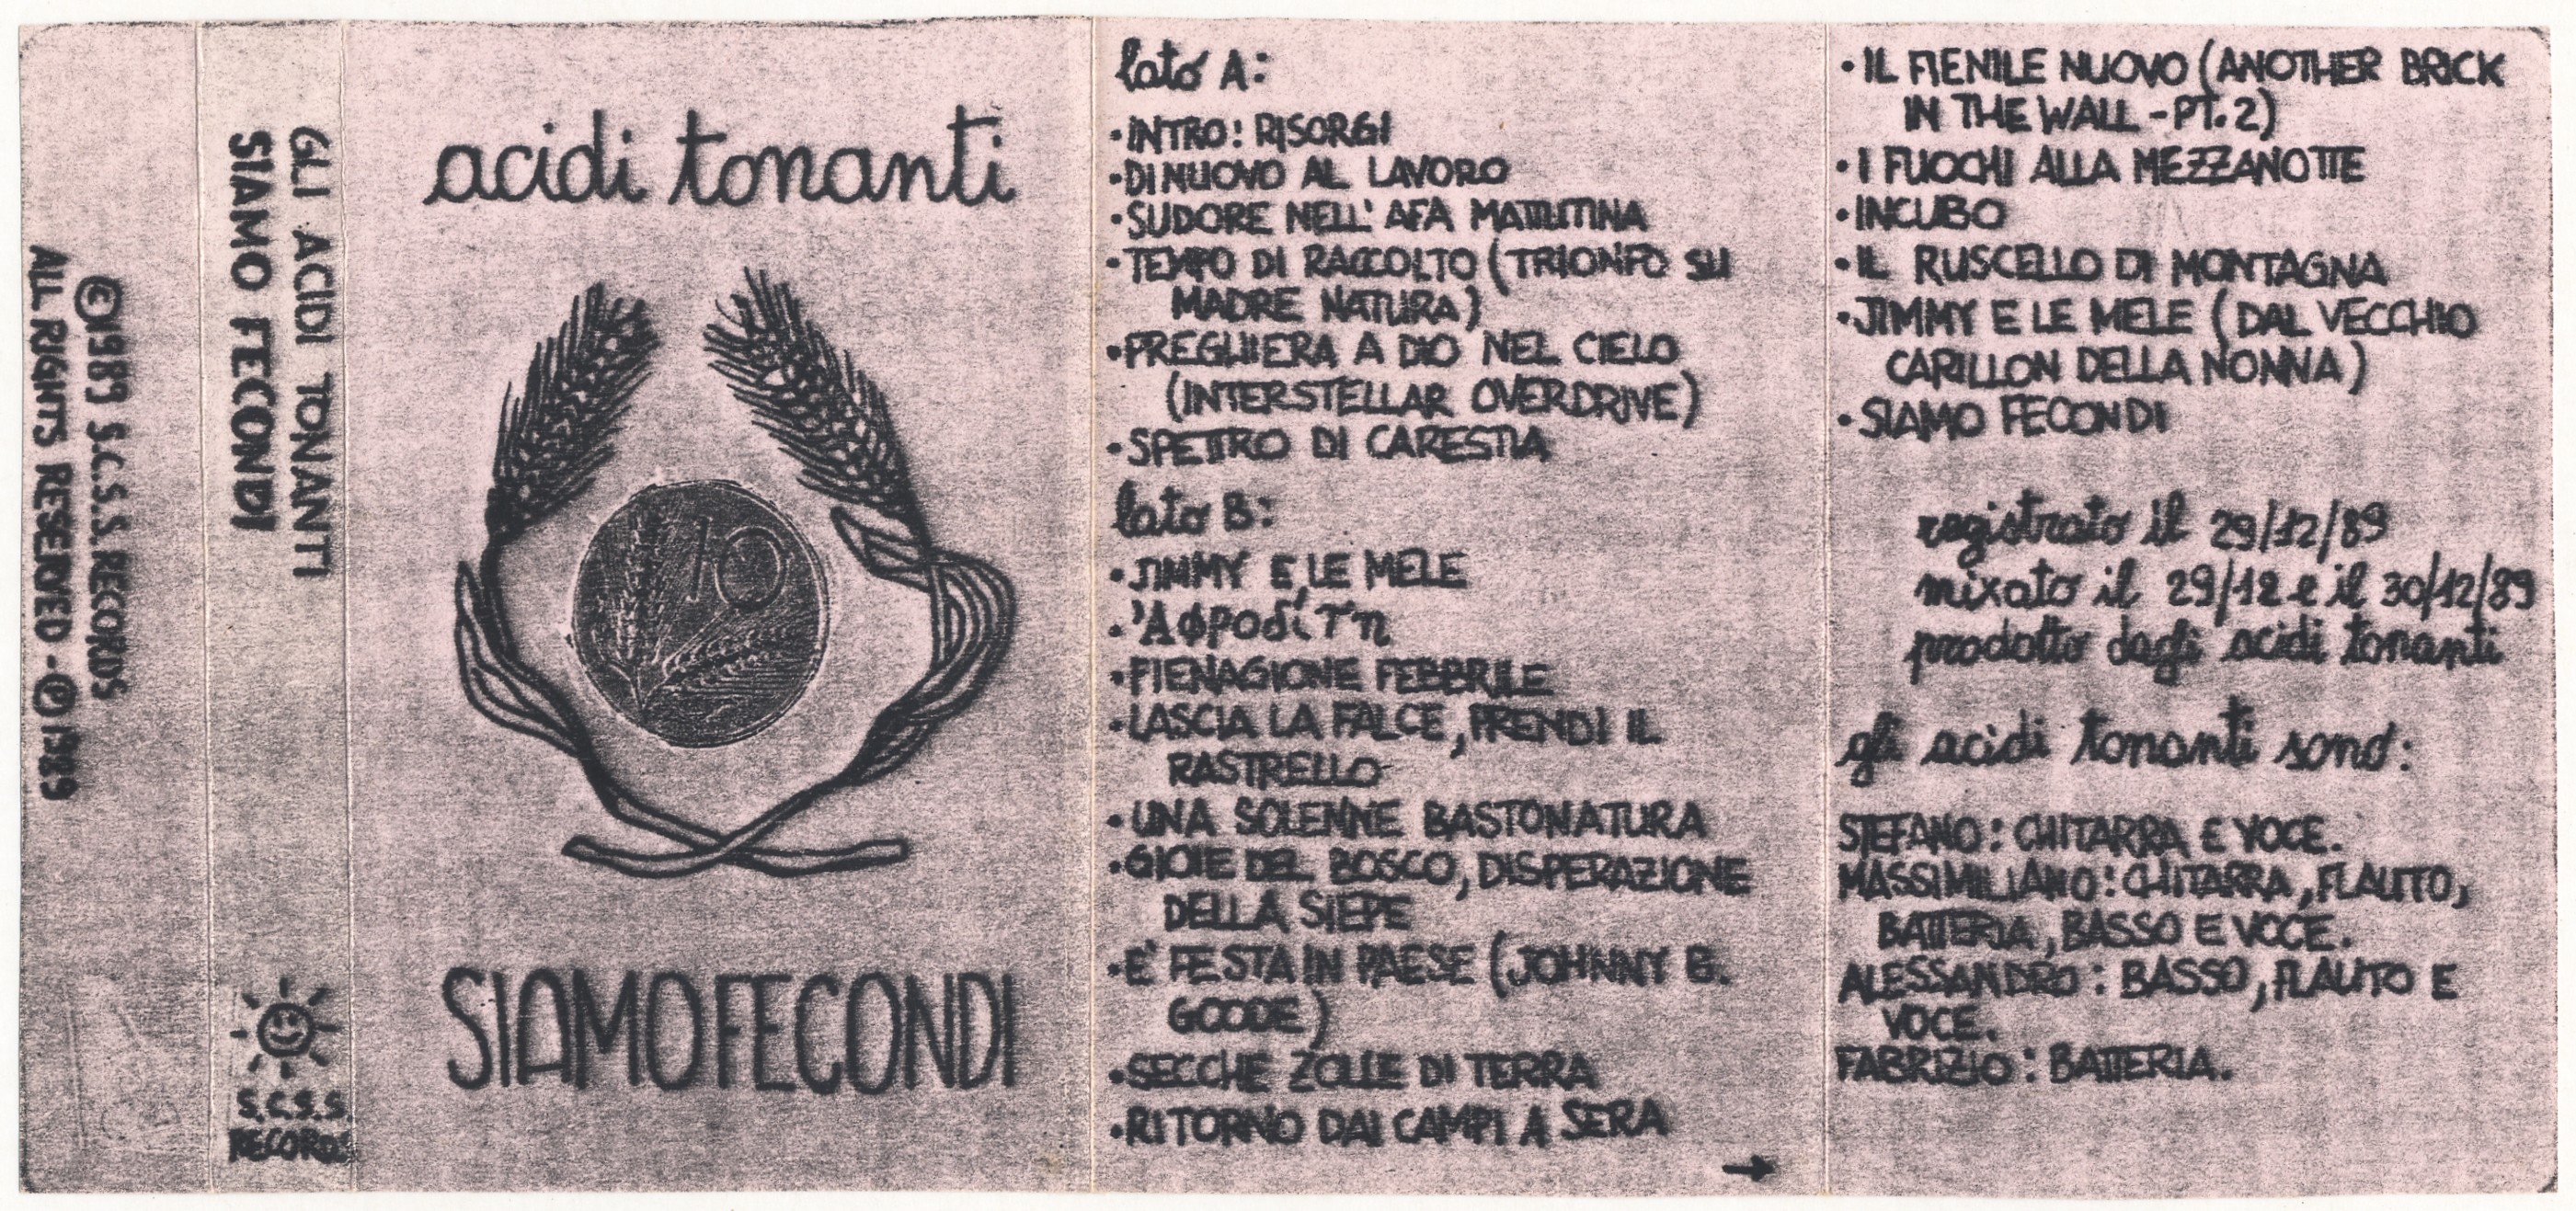 © 1989 S.C.S.S. RECORDS
ALL RIGHTS RESERVED - ℗ 1989
GLI ACIDI TONANTI
SIAMO FECONDI
S.C.S.S.
RECORDS
acidi tonanti
10
SIAMO FECONDI
lato A:
•INTRO: RISORGI
•DI NUOVO AL LAVORO
•SUDORE NELL' AFA MATTUTINA
•TEMPO DI RACCOLTO (TRIONFO SU
MADRE NATURA)
•PREGHIERA A DIO NEL CIELO
(INTERSTELLAR OVERDRIVE)
•SPETTRO DI CARESTIA
lato B:
•JIMMY E LE MELE
•'Αφροδίτη
•FIENAGIONE FEBBRILE
•LASCIA LA FALCE, PRENDI IL
RASTRELLO
•UNA SOLENNE BASTONATURA
•GIOIE DEL BOSCO, DISPERAZIONE
DELLA SIEPE
•E' FESTA IN PAESE (JOHNNY B.
GOODE)
•SECCHE ZOLLE DI TERRA
•RITORNO DAI CAMPI A SERA
→
•IL FIENILE NUOVO (ANOTHER BRICK
IN THE WALL - PT. 2)
•I FUOCHI ALLA MEZZANOTTE
•INCUBO
•IL RUSCELLO DI MONTAGNA
•JIMMY E LE MELE (DAL VECCHIO
CARILLON DELLA NONNA)
•SIAMO FECONDI
registrato il 29/12/89
mixato il 29/12 e il 30/12/89
prodotto dagli acidi tonanti
gli acidi tonanti sono:
STEFANO: CHITARRA E VOCE.
MASSIMILIANO: CHITARRA, FLAUTO,
BATTERIA, BASSO E VOCE.
ALESSANDRO: BASSO, FLAUTO E
VOCE.
FABRIZIO: BATTERIA.